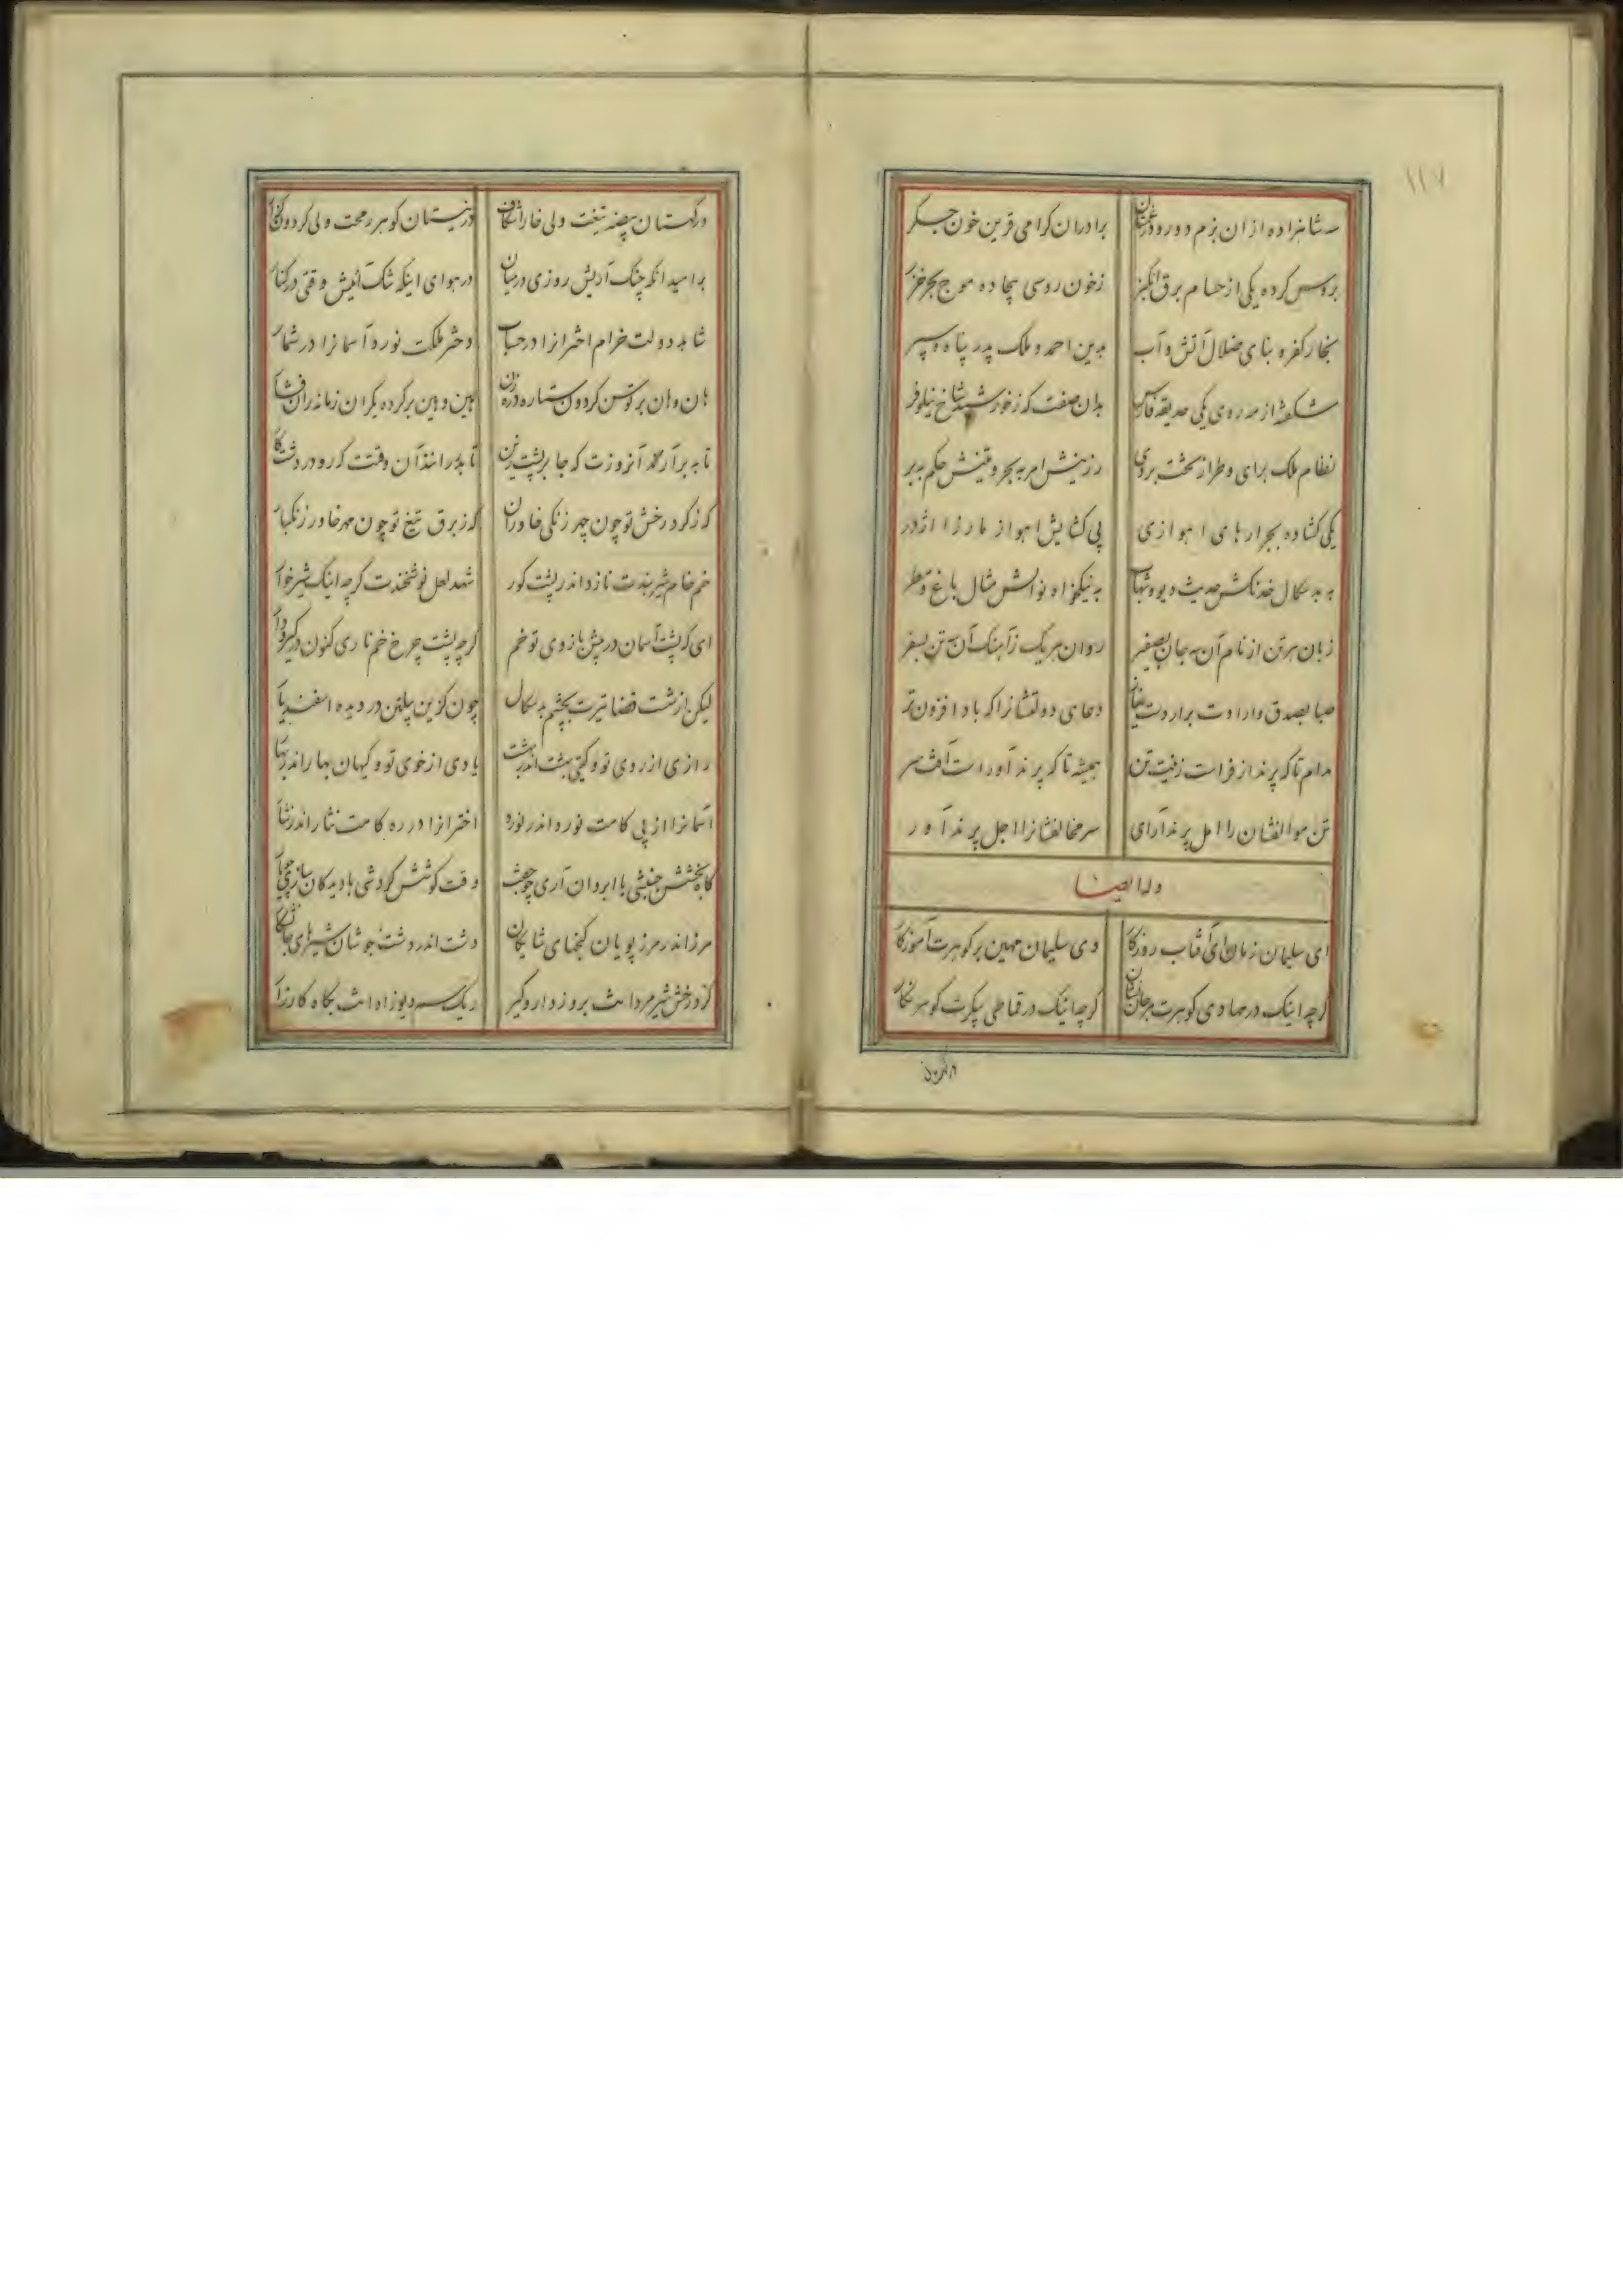 ۱۱۷
سه شاهزاده از ان بزم دور و در غمشان برادران کرامی قرین خون جکر
بروس کرده یکی از حسام برق انکیز زخون روسی بیجاده موج بحر خزر
بخار کفر و بنای ضلال آتش و آب بدین احمد و ملک پدر پناه و سپر
شکفته از مه روی یکی حدیقه فارس بدان صفت که زخورشید شاخ نیلوفر
نظام ملک برای و طراز تخت بروی رزینش امر به بحر و متینش حکم به بر
یکی کشاده بجرارهای اهوازی پی کشایش اهواز مار زا اژدر
به بد سکال خدنکش حدیث دیو و شهاب به نیکخواه نوالش مثال باغ و مطر
زبان هر تن از نام آن سه جان بصفیر روان هر یک زآهنک آن سه تن بسفر
صبا بصدق و ارادت برار دست دعای دولتشانرا که باد افزون تر
مدام تا که پرند از فراست زینت تن همیشه تا که پرند آور است آفت سر
تن موالفشان را امل پرند آرای سر مخالفشانرا اجل پرند آور
وله ایضا
ای سلیمان زمان ای آفتاب روزکار وی سلیمان مهین بر کوهرت آموزکار
کرچه اینک در مهادی کوهرت مرجان کرچه اینک در قماطی پیکرت کوهر نکار
در کلستان
در کلستان بیضه تیغت ولی خارا شکاف در نیستان کوهر رمحت ولی کردون
بر امید انکه چنک آریش روزی در میان در هوای اینکه تنک آئیش وقتی در کنار
شاهد دولت خرام اخترانرا در حساب دختر ملکت نورد آسمانرا در شمار
هان و هان بر توسن کردون ستاره هین و هین بر کرده یکران زمانه
تا به برآرند آنروزت که جا بر پشت زین تا بدر رانند آن وقتت که رو در دشت
که زکرد رخش تو چون چهر زنکی خاوران که زبرق تیغ تو چون مهر خاور زنکبار
خم خام شیر بندت نازد اندر پشت کور شهد لعل نوشخندت کرچه اینک شیرخوار
ای که پشت آسمان در پیش بازوی تو خم کرچه پشت چرخ خم ناری کنون در کیر و دار
لیکن از شست قضا تیرت بچشم بد سکال چون کزین پیلتن در دیده اسفندیار
رازی از روی تو و کیتی بهشت اندر بهشت یادی از خوی تو و کیهان بهار اندر بهار
آسمانرا از پی کامت نورد اندر نورد اخترانرا در ره کامت نثار اندر نثار
کاه بخشش جنبشی با ابروان آری وقت کوشش کردشی با دیدکان سازی
مرز اندر مرز پویان کنجهای شایکان دشت اندر دشت جوشان شیرهای
کز درخش شیر مردانت بروز دار و کیر ریک سم دیوزادانت بکاه کارزار